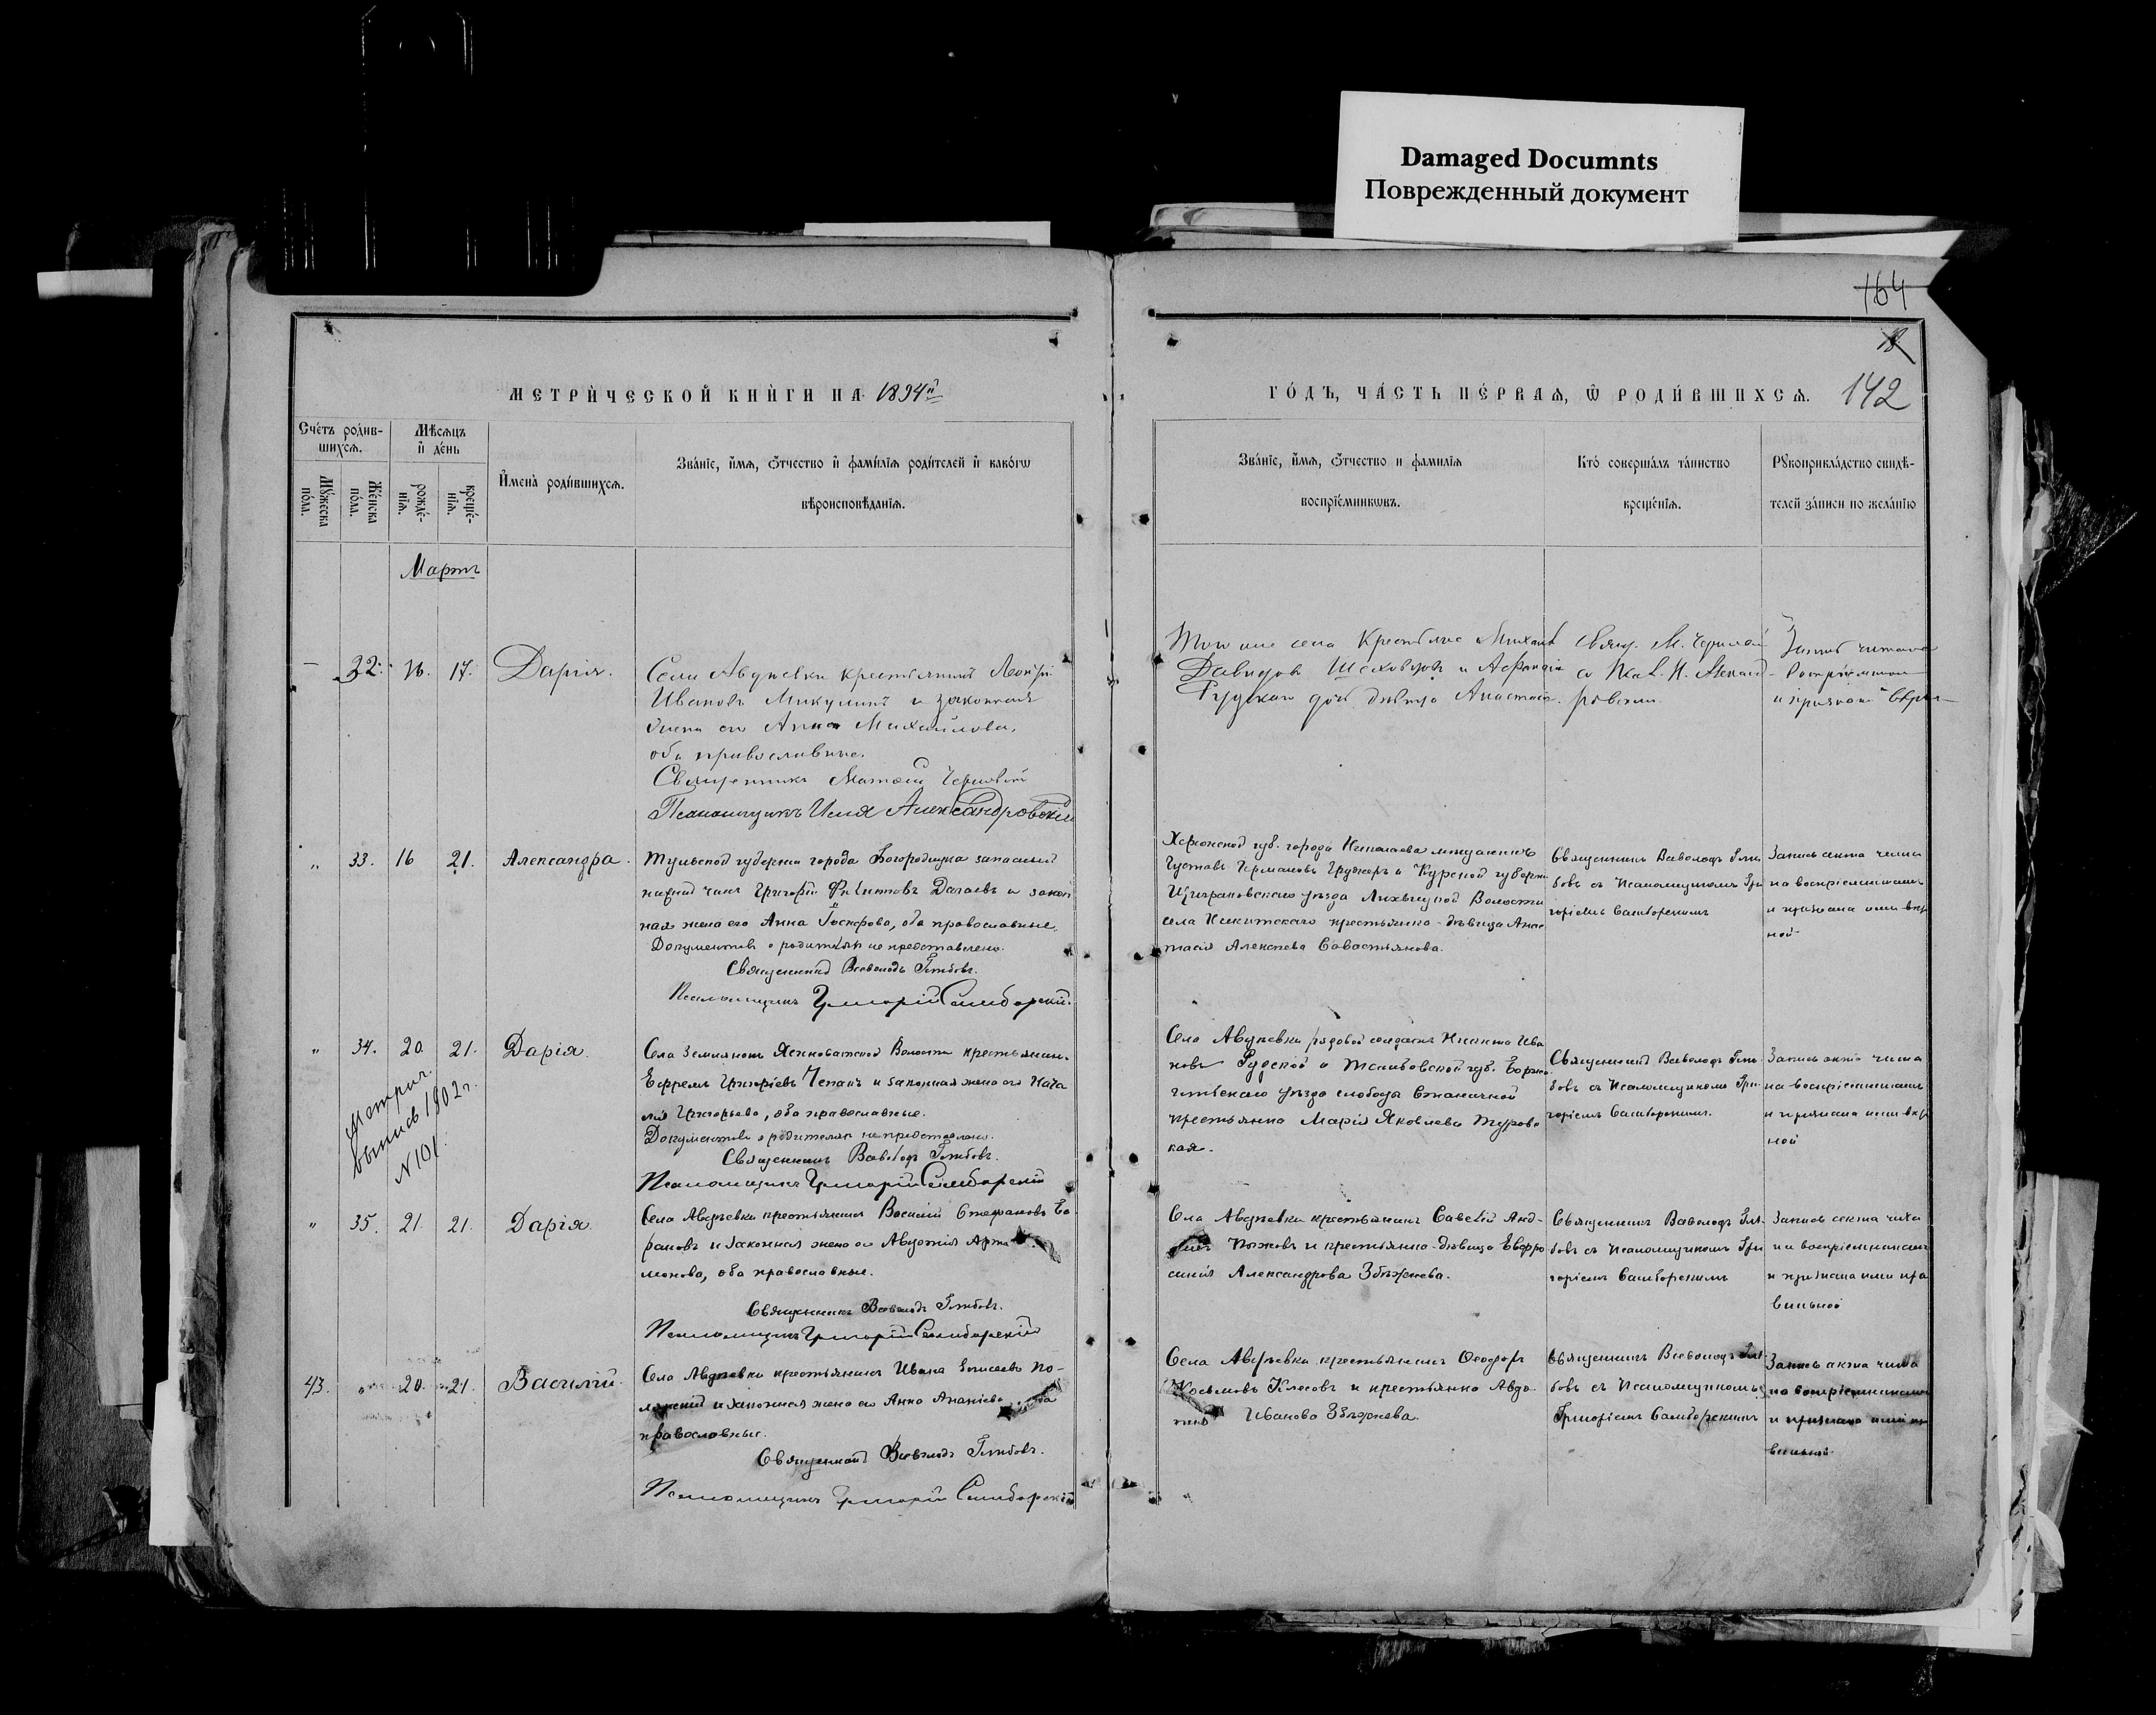 Damaged Documnts
Поврежденный документ
164
18
142
МЕТРИ́ЧЕСКОЙ КНИ́ГИ НА 1894й
ГО́ДЪ, ЧА́СТЬ ПЕ́РВАѦ, Ѿ РОДИ́ВШИХСѦ.
Сче́тъ роди́в-
шихсѧ.
Мѣсѧцъ
и҆ де́нь
Мꙋ́жеска
по́ла.
Же́нска
по́ла.
рожде́-
нїѧ.
креще́-
нїѧ.
И҆мена̀ роди́вшихсѧ.
Зва́нїе, и҆́мѧ, ѻ҆́тчество и҆ фамі́лїѧ роди́телей и҆ како́гѡ
вѣроисповѣ́данїѧ.
Зва́нїе, и҆́мѧ, ѻ҆́тчество и фамилїѧ
воспрїе́мникѡвъ.
Кто̀ соверша́лъ та́инство
креще́нїѧ.
Рꙋкоприкла́дство свидѣ́-
телей за́писи по жела́нїю
Мартъ
32. 16. 17. Дарія.
Села Авдѣевки крестьянинъ
Ивановъ Микулинъ и законная
жена его Анна Михайлова,
оба православные.
Священникъ Матѳей
Псаломщикъ Илія Александровскій
Того же села крестьяне Михаилъ
Давидовъ Шаховцовъ и
дѣвица
Свящ. М.
и признана
" 33. 16 21. Александра.
Тульской губерніи города Богородицка запасный
чинъ Григорій Дагаевъ и закон
ная жена его Анна Іосифова, оба православные.
Документовъ о родителяхъ не представлено.
Священникъ Всеволодъ Глѣбовъ.
Псаломщикъ Григорій Самборскій.
Херсонской губ. города Николаева мѣщанинъ
Густавъ Германовъ и Курской губерніи
Щигровскаго уѣзда Волости
села Никитскаго крестьянка-дѣвица Анас
тасія Алексѣева Савостьянова.
Священникъ Всеволодъ Глѣ
бовъ съ Псаломщикомъ Гри
горіемъ Самборскимъ
Запись акта чита
на воспріемникамъ
и признана ими вѣр
ной
" 34. 20. 21. Дарія.
метрич.
выпись 1902 г.
N 101
Села Землянокъ Ясиноватской Волости крестьянинъ
Ефремъ Григоріевъ Чепакъ и законная жена его Ната
лія Григорьева, оба православные.
Документовъ о родителяхъ не представлено.
Священникъ Всеволодъ Глѣбовъ.
Псаломщикъ Григорій Самборскій
Села Авдѣевки рядовой солдатъ Никита Ива
новъ Рудской и Тамбовской губ. Борисо
глѣбскаго уѣзда слободы Станичной
крестьянка Марія Яковлева Турово
кая.
Священникъ Всеволодъ Глѣ
бовъ съ Псаломщикомъ Гри
горіемъ Самборскимъ.
Запись акта чита
на воспріемникамъ
и признана ими вѣр
ной
" 35. 21. 21. Дарія.
Села Авдѣевки крестьянинъ Василій Стефановъ
и законная жена его Авдотія Арта
монова, оба православные.
Священникъ Всеволодъ Глѣбовъ.
Псаломщикъ Григорій Самборскій
Села Авдѣевки крестьянинъ Савелій
и крестьянка-дѣвица Евфро
синія Александрова Збѣжнева.
Священникъ Всеволодъ Глѣ
бовъ съ Псаломщикомъ Гри
горіемъ Самборскимъ
Запись акта чита
на воспріемникамъ
и признана ими пра
вильной
43. " 20. 21. Василій.
Села Авдѣевки крестьянинъ Иванъ По-
и законная жена его Анна Ананіева, оба
православные.
Священникъ Всеволодъ Глѣбовъ.
Псаломщикъ Григорій Самборскій
Села Авдѣевки крестьянинъ Ѳеодоръ
Косьмовъ Клесовъ и крестьянка Авдо
тія Иванова Збѣжнева.
Священникъ Всеволодъ Глѣ
бовъ съ Псаломщикомъ
Григоріемъ Самборскимъ
Запись акта чита
на воспріемникамъ
и признана ими пра
вильной